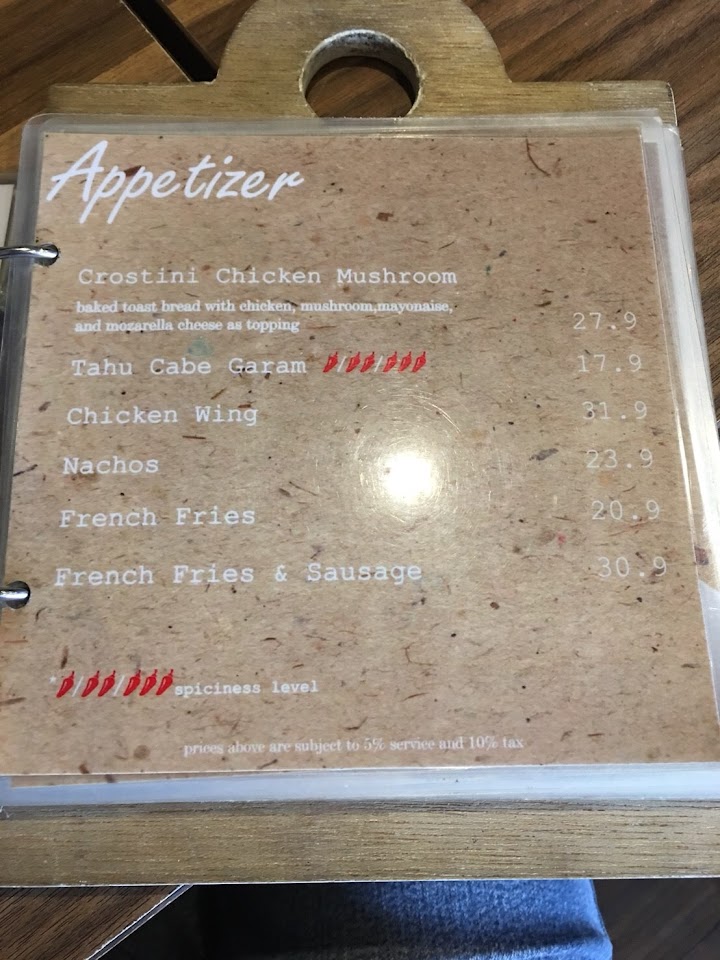 Appetizer
Crostini Chicken Mushroom
baked toast bread with chicken, mushroom,mayonaise,
and mozarella cheese as topping 27.9
Tahu Cabe Garam / / 17.9
Chicken Wing 31.9
Nachos 23.9
French Fries 20.9
French Fries & Sausage 30.9
* / / spiciness level
prices above are subject to 5% service and 10% tax